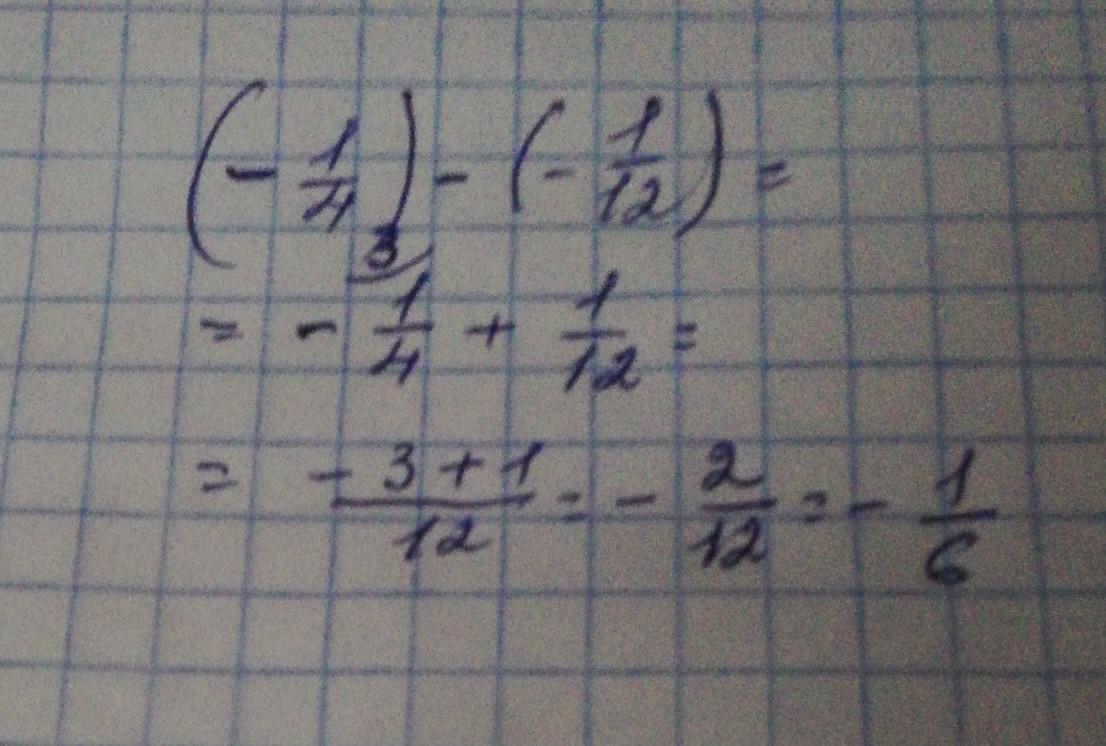 (-1/4) - (-1/12) =
= - 1/4 ³⁾ + 1/12 =
= (-3+1)/12 = - 2/12 = - 1/6